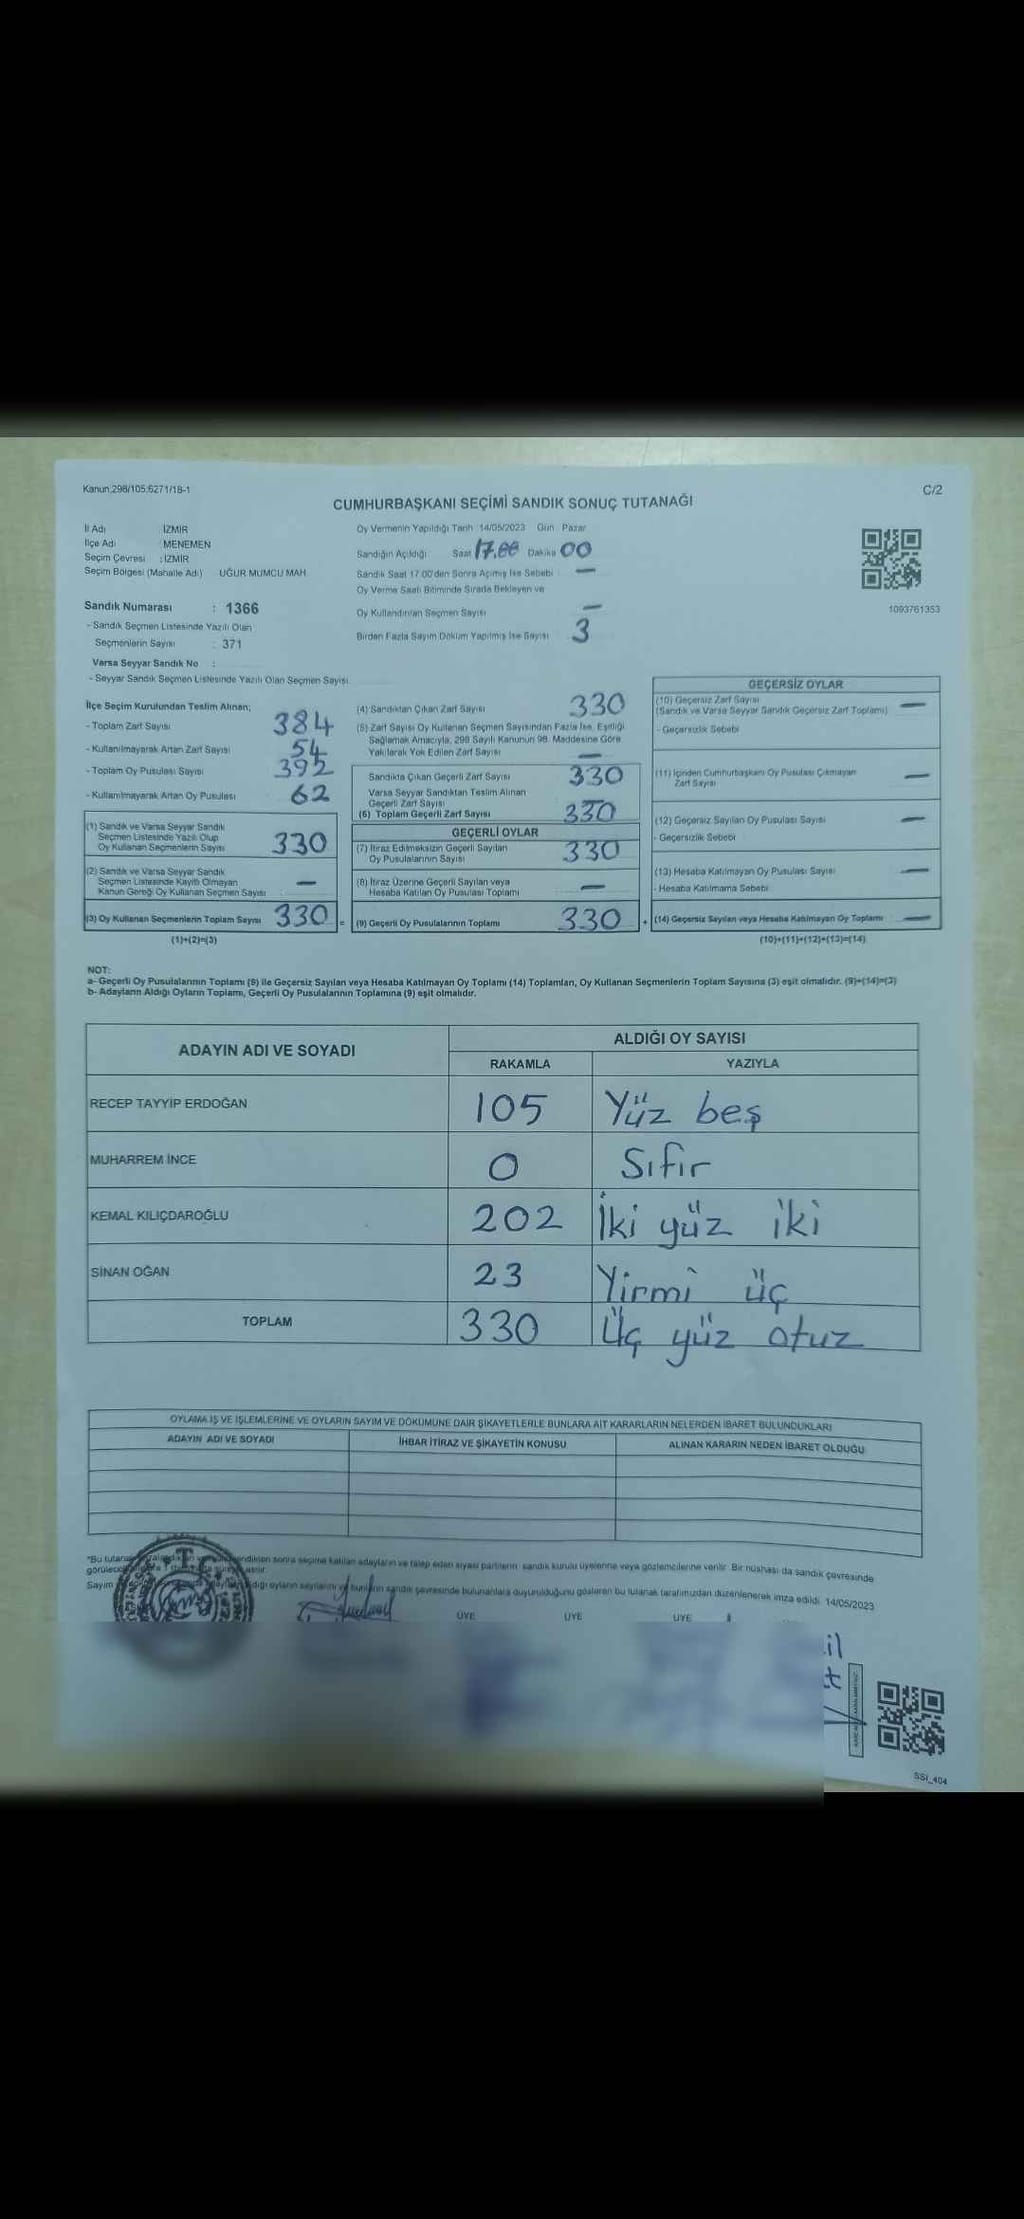 Kanun;298/105;6271/18-1
C/2
CUMHURBAŞKANI SEÇİMİ SANDIK SONUÇ TUTANAĞI
İl Adı : İZMİR
İlçe Adı : MENEMEN
Seçim Çevresi : İZMİR
Seçim Bölgesi (Mahalle Adı) UĞUR MUMCU MAH.
Sandık Numarası : 1366
- Sandık Seçmen Listesinde Yazılı Olan
Seçmenlerin Sayısı : 371
Varsa Seyyar Sandık No :
- Seyyar Sandık Seçmen Listesinde Yazılı Olan Seçmen Sayısı
Oy Vermenin Yapıldığı Tarih 14/05/2023 Gün Pazar
Sandığın Açıldığı Saat 17.00 Dakika 00
Sandık Saat 17.00'den Sonra Açılmış İse Sebebi —
Oy Verme Saati Bitiminde Sırada Bekleyen ve
Oy Kullandırılan Seçmen Sayısı —
Birden Fazla Sayım Döküm Yapılmış İse Sayısı 3
1093761353
İlçe Seçim Kurulundan Teslim Alınan;
- Toplam Zarf Sayısı 384
- Kullanılmayarak Artan Zarf Sayısı 54
- Toplam Oy Pusulası Sayısı 392
- Kullanılmayarak Artan Oy Pusulası 62
(1) Sandık ve Varsa Seyyar Sandık
Seçmen Listesinde Yazılı Olup
Oy Kullanan Seçmenlerin Sayısı 330
(2) Sandık ve Varsa Seyyar Sandık
Seçmen Listesinde Kayıtlı Olmayan
Kanun Gereği Oy Kullanan Seçmen Sayısı —
(3) Oy Kullanan Seçmenlerin Toplam Sayısı 330 =
(1)+(2)=(3)
(4) Sandıktan Çıkan Zarf Sayısı 330
(5) Zarf Sayısı Oy Kullanan Seçmen Sayısından Fazla İse, Eşitliği
Sağlamak Amacıyla, 298 Sayılı Kanunun 98. Maddesine Göre
Yakılarak Yok Edilen Zarf Sayısı —
Sandıkta Çıkan Geçerli Zarf Sayısı 330
Varsa Seyyar Sandıktan Teslim Alınan
Geçerli Zarf Sayısı —
(6) Toplam Geçerli Zarf Sayısı 330
GEÇERLİ OYLAR
(7) İtiraz Edilmeksizin Geçerli Sayılan
Oy Pusulalarının Sayısı 330
(8) İtiraz Üzerine Geçerli Sayılan veya
Hesaba Katılan Oy Pusulası Toplamı —
(9) Geçerli Oy Pusulalarının Toplamı 330 +
GEÇERSİZ OYLAR
(10) Geçersiz Zarf Sayısı
(Sandık ve Varsa Seyyar Sandık Geçersiz Zarf Toplamı) —
- Geçersizlik Sebebi
(11) İçinden Cumhurbaşkanı Oy Pusulası Çıkmayan
Zarf Sayısı —
(12) Geçersiz Sayılan Oy Pusulası Sayısı —
- Geçersizlik Sebebi
(13) Hesaba Katılmayan Oy Pusulası Sayısı —
- Hesaba Katılmama Sebebi
(14) Geçersiz Sayılan veya Hesaba Katılmayan Oy Toplamı —
(10)+(11)+(12)+(13)=(14)
NOT:
a- Geçerli Oy Pusulalarının Toplamı (9) ile Geçersiz Sayılan veya Hesaba Katılmayan Oy Toplamı (14) Toplamları, Oy Kullanan Seçmenlerin Toplam Sayısına (3) eşit olmalıdır. (9)+(14)=(3)
b- Adayların Aldığı Oyların Toplamı, Geçerli Oy Pusulalarının Toplamına (9) eşit olmalıdır.
ADAYIN ADI VE SOYADI
ALDIĞI OY SAYISI
RAKAMLA YAZIYLA
RECEP TAYYİP ERDOĞAN 105 Yüz beş
MUHARREM İNCE 0 Sıfır
KEMAL KILIÇDAROĞLU 202 İki yüz iki
SİNAN OĞAN 23 Yirmi üç
TOPLAM 330 Üç yüz otuz
OYLAMA İŞ VE İŞLEMLERİNE VE OYLARIN SAYIM VE DÖKÜMÜNE DAİR ŞİKAYETLERLE BUNLARA AİT KARARLARIN NELERDEN İBARET BULUNDUKLARI
ADAYIN ADI VE SOYADI İHBAR İTİRAZ VE ŞİKAYETİN KONUSU ALINAN KARARIN NEDEN İBARET OLDUĞU
*Bu sonra seçime katılan adayların ve talep eden siyasi partilerin sandık kurulu üyelerine veya gözlemcilerine verilir. Bir nüshası da sandık çevresinde
Sayım oyların sayılarını ve bunların sandık çevresinde bulunanlara duyurulduğunu gösteren bu tutanak tarafımızdan düzenlenerek imza edildi. 14/05/2023
ÜYE ÜYE ÜYE
SSI_404